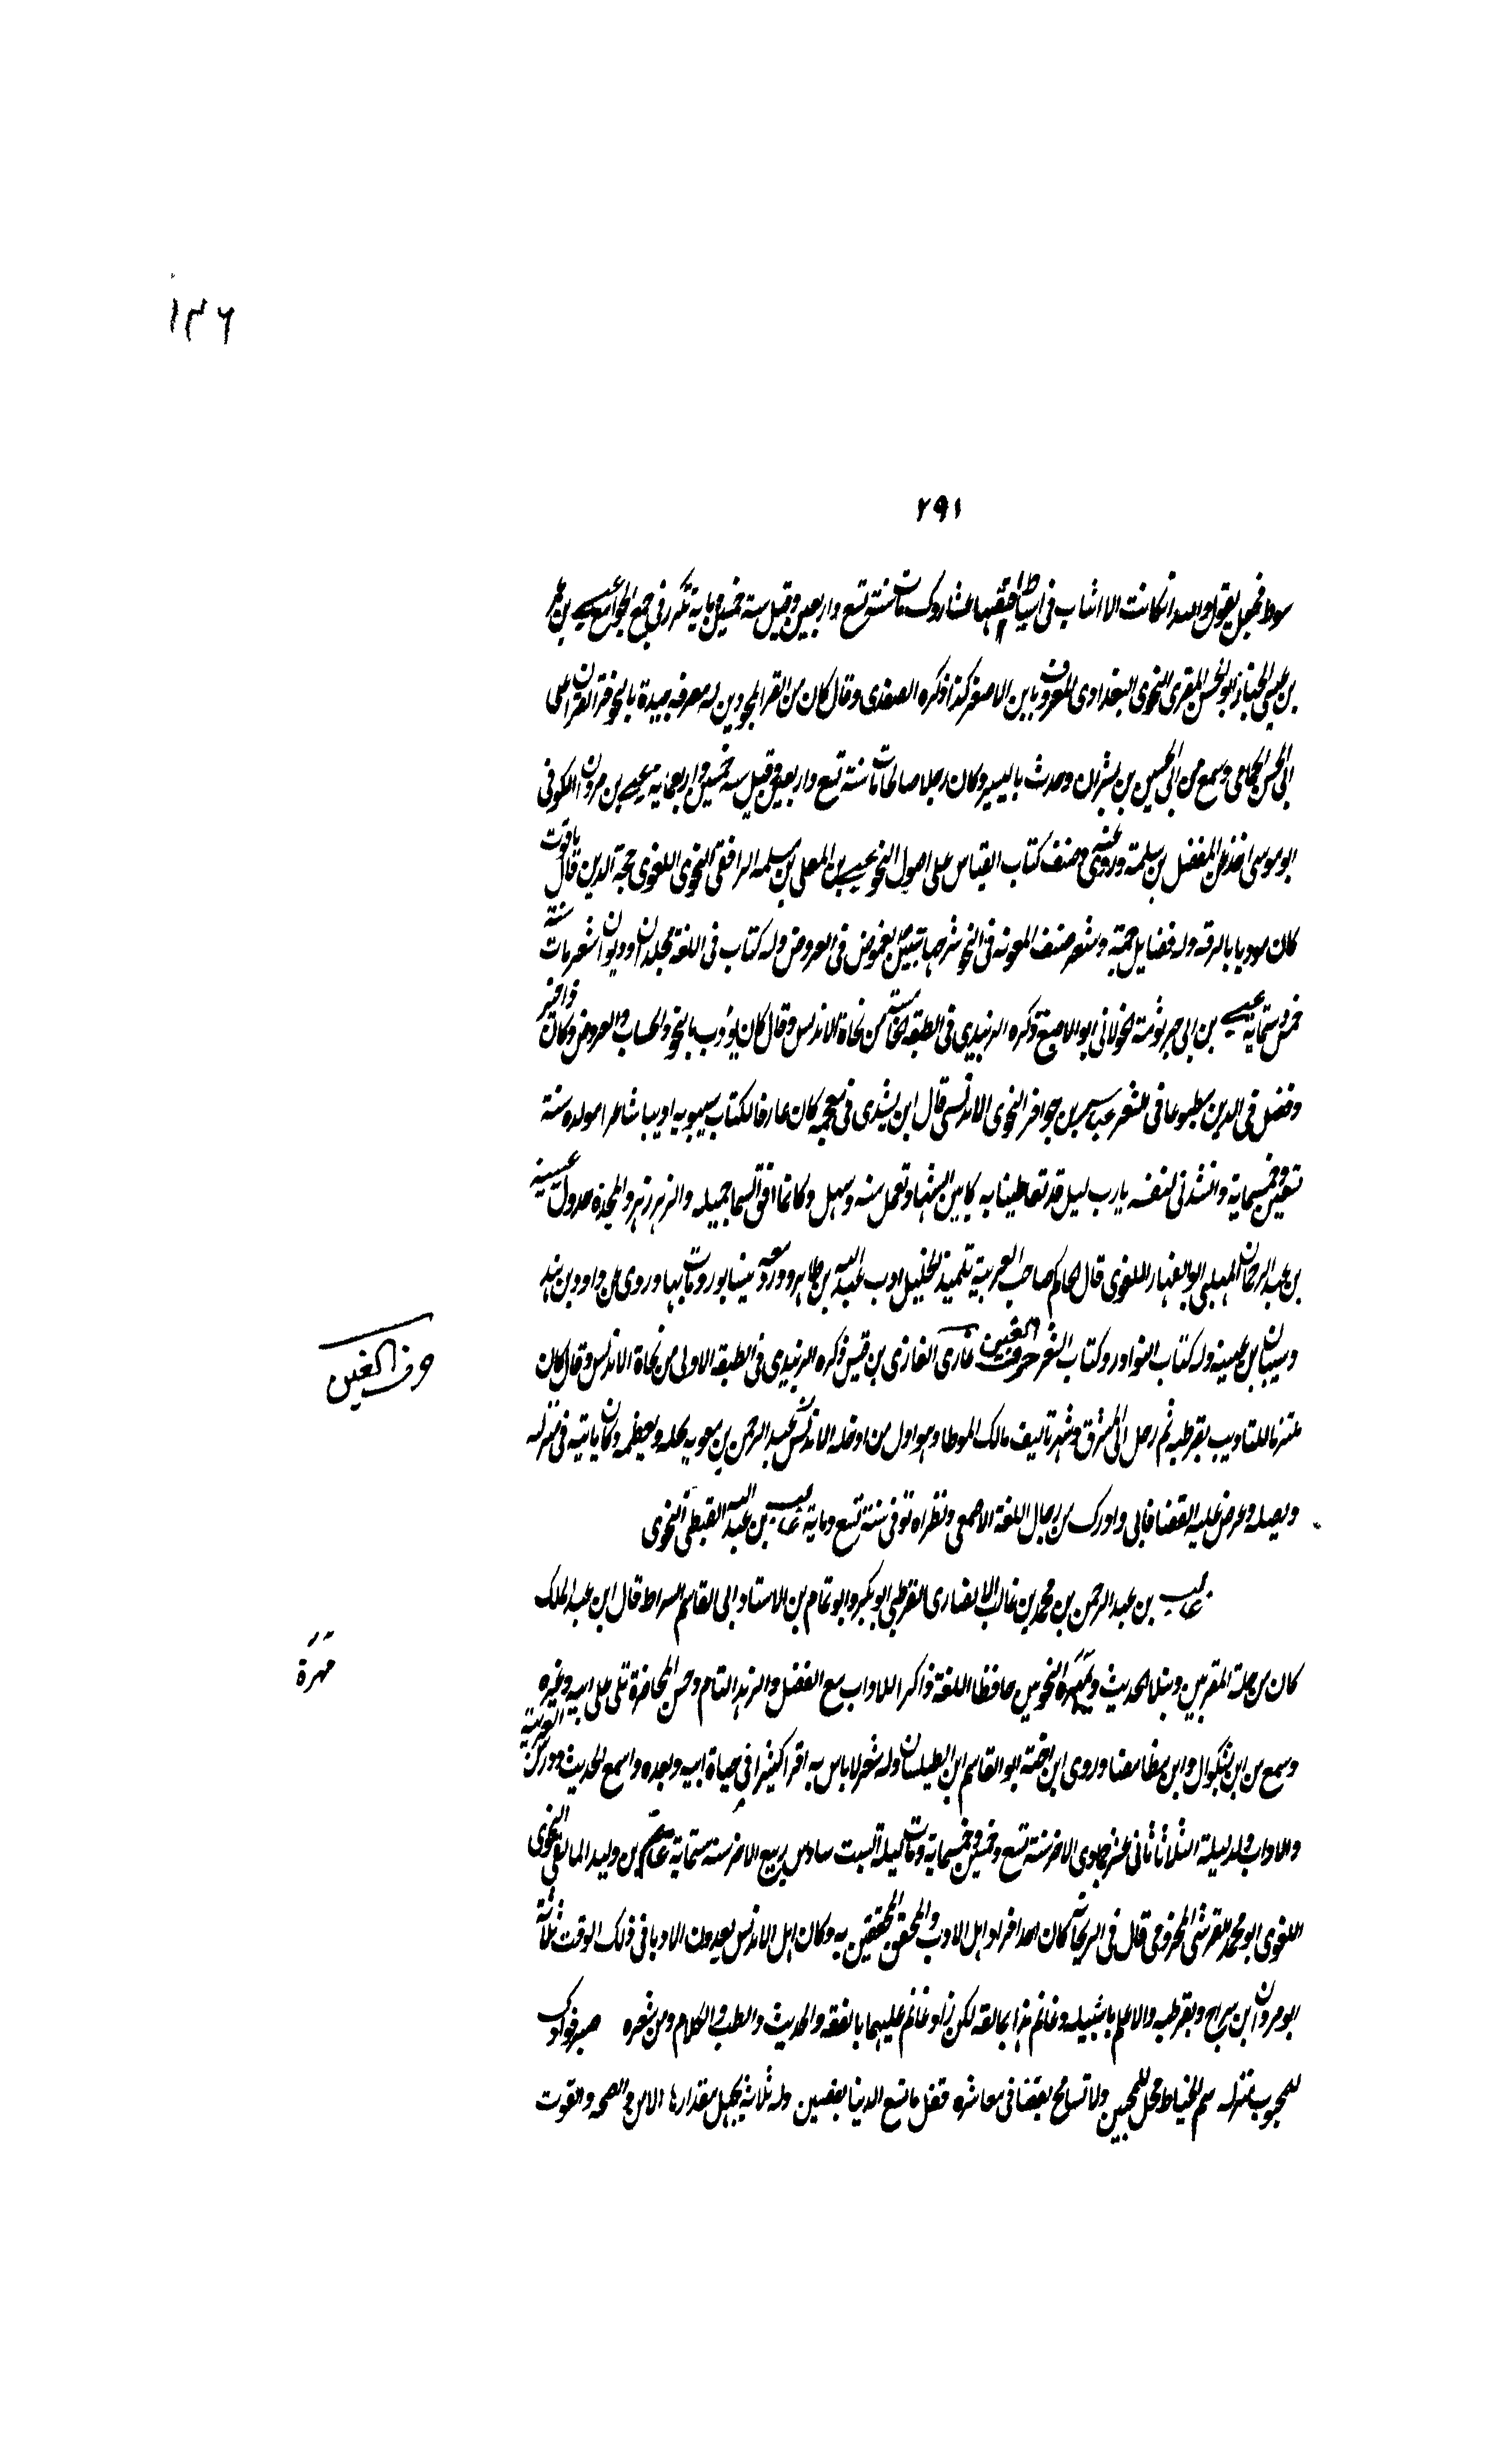 ١٣٦
٢٩١
سوط فجعل يقول والله ان كانت الا اثياب في اسيفاط قبضها عشاروك مات سنة تسع واربعين وقيل سنة خمسين وماية تكرر في جمع الجوامع عيسى بن عمر
بن عيسى الخباز ابو الحسن المقرى النحوى البغدادى المعروف بابن الاصفر كذا ذكره الصفدى وقال كان من القرا المجودين له معرفه جيدة بالنحو قرا القران على
ابى الحسن الحمامى وسمع من ابى الحسين بن بشران وحدث باليسير وكان رجلا صالحا مات سنة تسع واربعين وقيل سنه خمسين واربعماية عيسى بن مروان الكوفى
ابو موسى اخذ عن المفضل بن سلمة وروى عنه وصنف كتاب القياس على اصول النحو عيسى بن المعلى بن مسلمه الرافقى النحوى اللغوى حجة الدين قال ياقوت
كان موديا بالرقه وله فضايل جمة وشعر صنف المعونه فى النحو شرحها تبيين الغموض فى العروض وله كتاب فى اللغة مجلدان وديوان شعر مات سنة
خمس وستماية عيسى بن ابى جرثومة الخولانى ابو الاصبغ ذكره الزبيدى فى الطبقه الخامسة من نحاة الاندلس وقال كان يؤدب بالنحو والحساب والعروض وكان ذا خير
وفضل فى الدين مطبوعا فى الشعر عيسى بن جوافر النحوى الاندلسى قال ابن مسدى فى معجمه كان عارفا لكتاب سيبويه اديبا شاعرا مولده سنة
تسعين وخمسماية وانشدنى لنفسه يارب ليل قد تعاطينا به كاس السهاد تعمل منه وسهل وكانما افق السما جميله والزهر زهر والمجرة جدول عيينة
بن عبد الرحمن المهلبى ابو المنهال اللغوى قال الحاكم صاحب العربية تلميذ الخليل ادب عبد الله بن طاهر وورد معه نيسابور ومات بها وروى عن داود بن ابى هند
وسفيان بن عيينه وله كتاب النوادر وكتاب الشعر حرف الغين غازى الغازى بن قيس ذكره الزبيدى فى الطبقة الاولى من نحاة الاندلس وقال كان
ملتزما للتاديب بقرطبه ثم رحل الى المشرق وشهد تاليف مالك الموطا وهو اول من ادخله الاندلس وكان عبد الرحمن بن معويه يجله ويعظمه وكان ياتيه فى منزله
ويصله وعرض عليه القضا فابى وادرك من رجال اللغة الاصمعى ونظراه توفى سنة تسع وماية غالب بن عبد الله القبطى النحوى
غالب بن عبد الرحمن بن محمد بن غالب الانصارى القرطبى ابو بكر وابو تمام بن الاستاد ابى القاسم الشراط قال ابن عبد الملك
كان من جلة المقريين ونبلا المحدثين ومهرة النحويين حافظا اللغة ذاكرا للاداب مع الفضل والزهد التام وحسن المحاضرة تلى على ابيه وغيره
وسمع من ابن بشكوال وابن مضا وروى ابن اخته ابو القاسم ابن الطيلسان وله شعر لا باس به اقرا كثيرا فى حياة ابيه وبعده واسمع الحديث ودرس العربية
والاداب ولد ليلة الثلاثا ثانى عشر جمادى الاخر سنة تسع وخمسين وخمسماية ومات ليلة السبت سادس ربيع الاخر سنة ستماية غانم بن وليد المالقى النحوى
اللغوى ابو محمد القرشى المخزومى قال فى الريحانة كان احد افراد اهل الادب والمحقق المحققين به وكان اهل الاندلس يعدون الادبا فى ذلك الوقت ثلاثة
ابو مروان ابن سراج وبقرطبه والاعلم باشبيليه وغانم هذا بمالقه لكن زاد غانم عليهما بالفقه والحديث والطب والكلام ومن شعره صير فوادك
للمحبوب منزله سم الخياط محل للمحبين ولا تسامح بغيضا فى معاشره فقل ما تسع الدنيا بغيضين وله ثلاثة يجهل مقدارها الامن والصحه والقوت
حرف الغين
مهرة